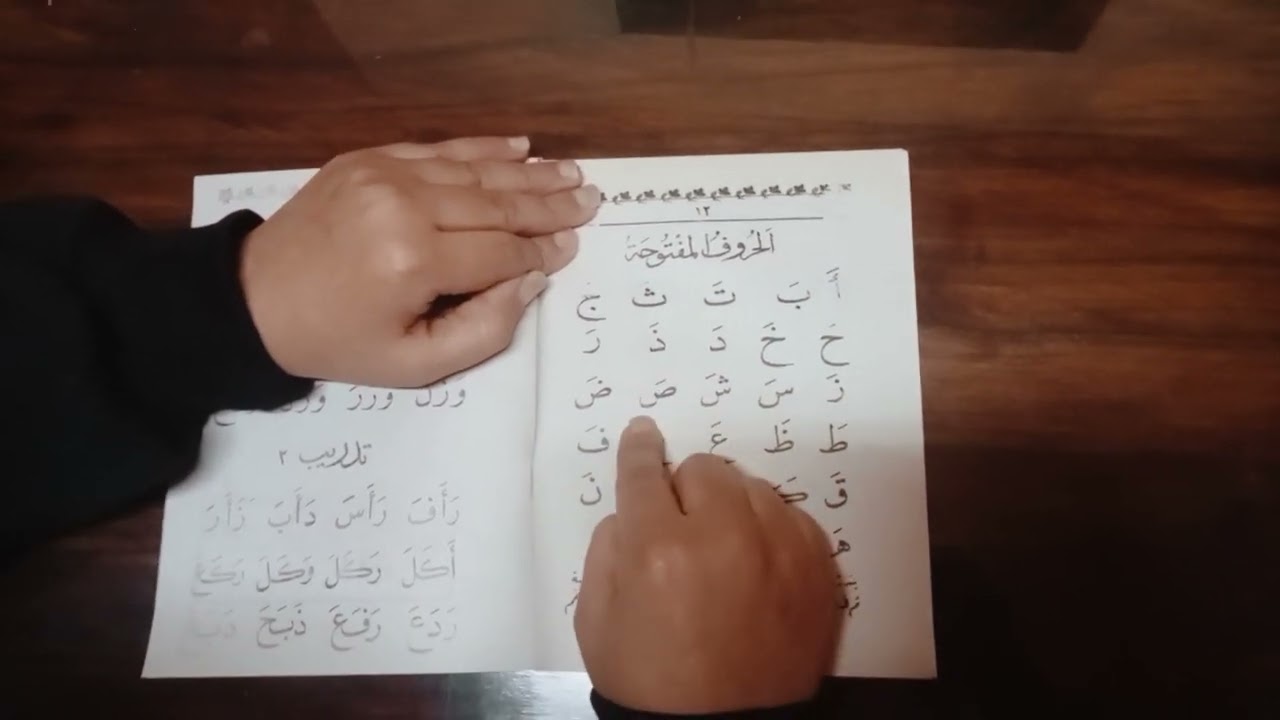 ١٢
اَلحُرُوفُ المَفْتُوحَةُ
أَ بَ تَ ثَ جَ
حَ خَ دَ ذَ رَ
زَ سَ شَ صَ ضَ
طَ ظَ عَ فَ
قَ كَ نَ
هَ
وَزَلَ وَرَرَ
تدريب ٢
رَأَفَ رَأَسَ دَأَبَ زَأَرَ
أَكَلَ رَكَلَ وَكَلَ رَكَعَ
رَدَعَ رَفَعَ ذَبَحَ